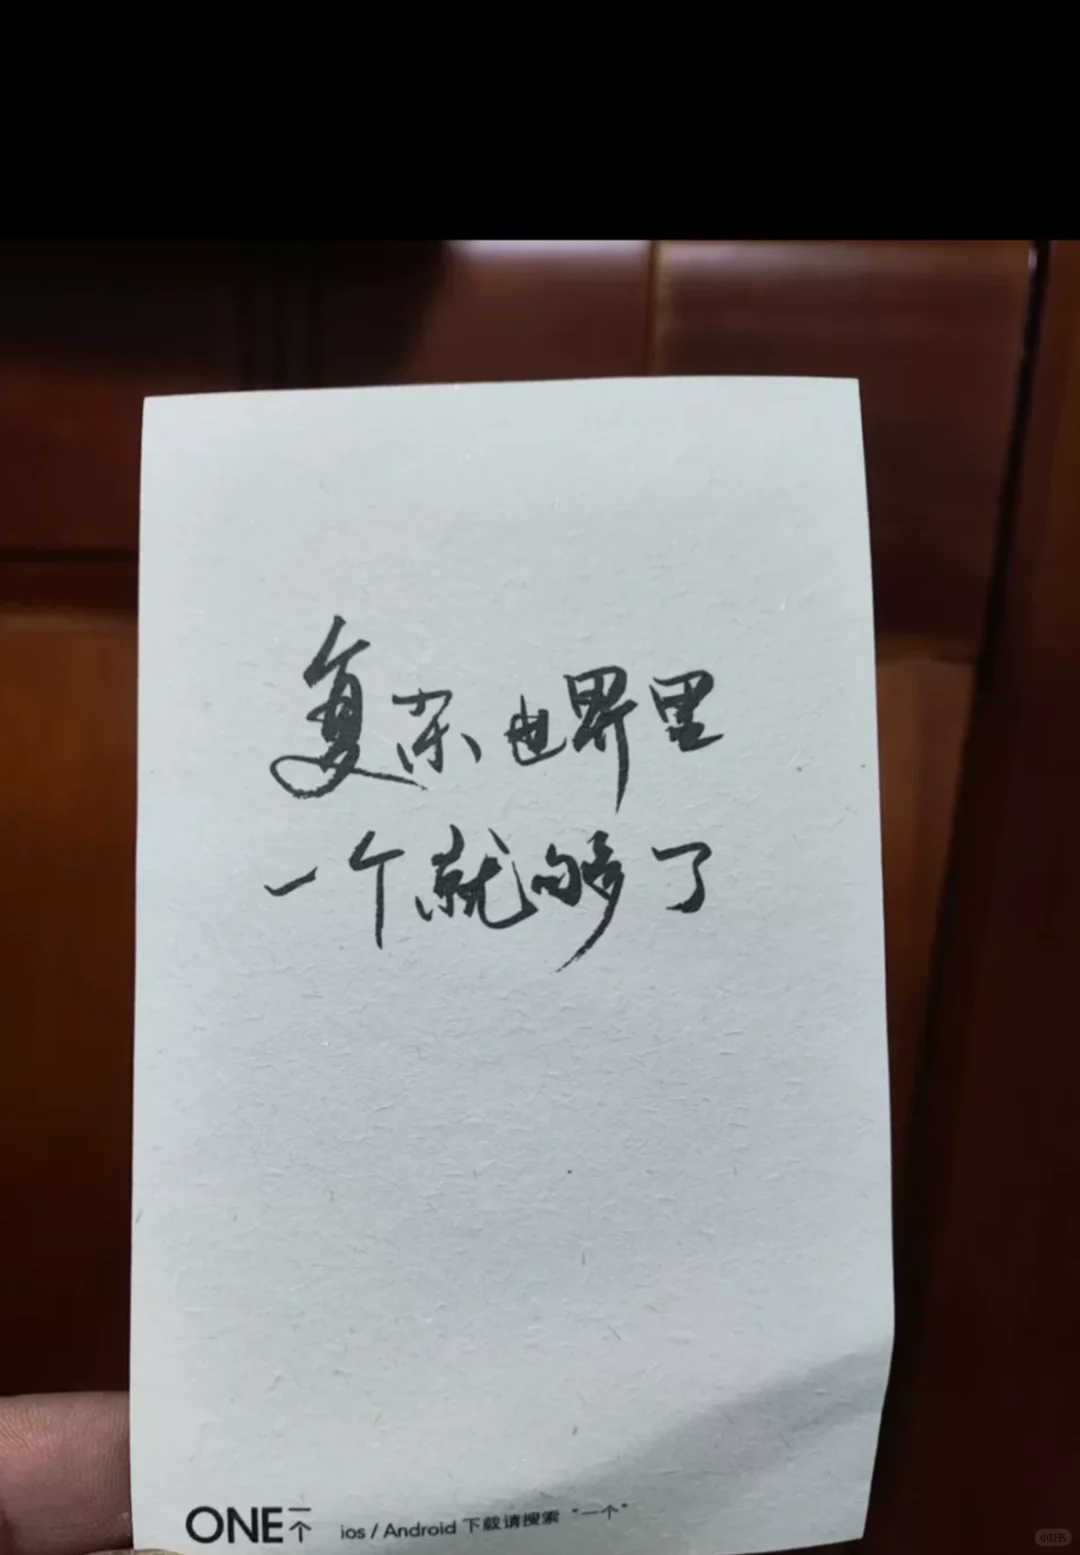 复杂世界里
一个就够了
ONE一个 ios / Android 下载请搜索“一个”
小红书